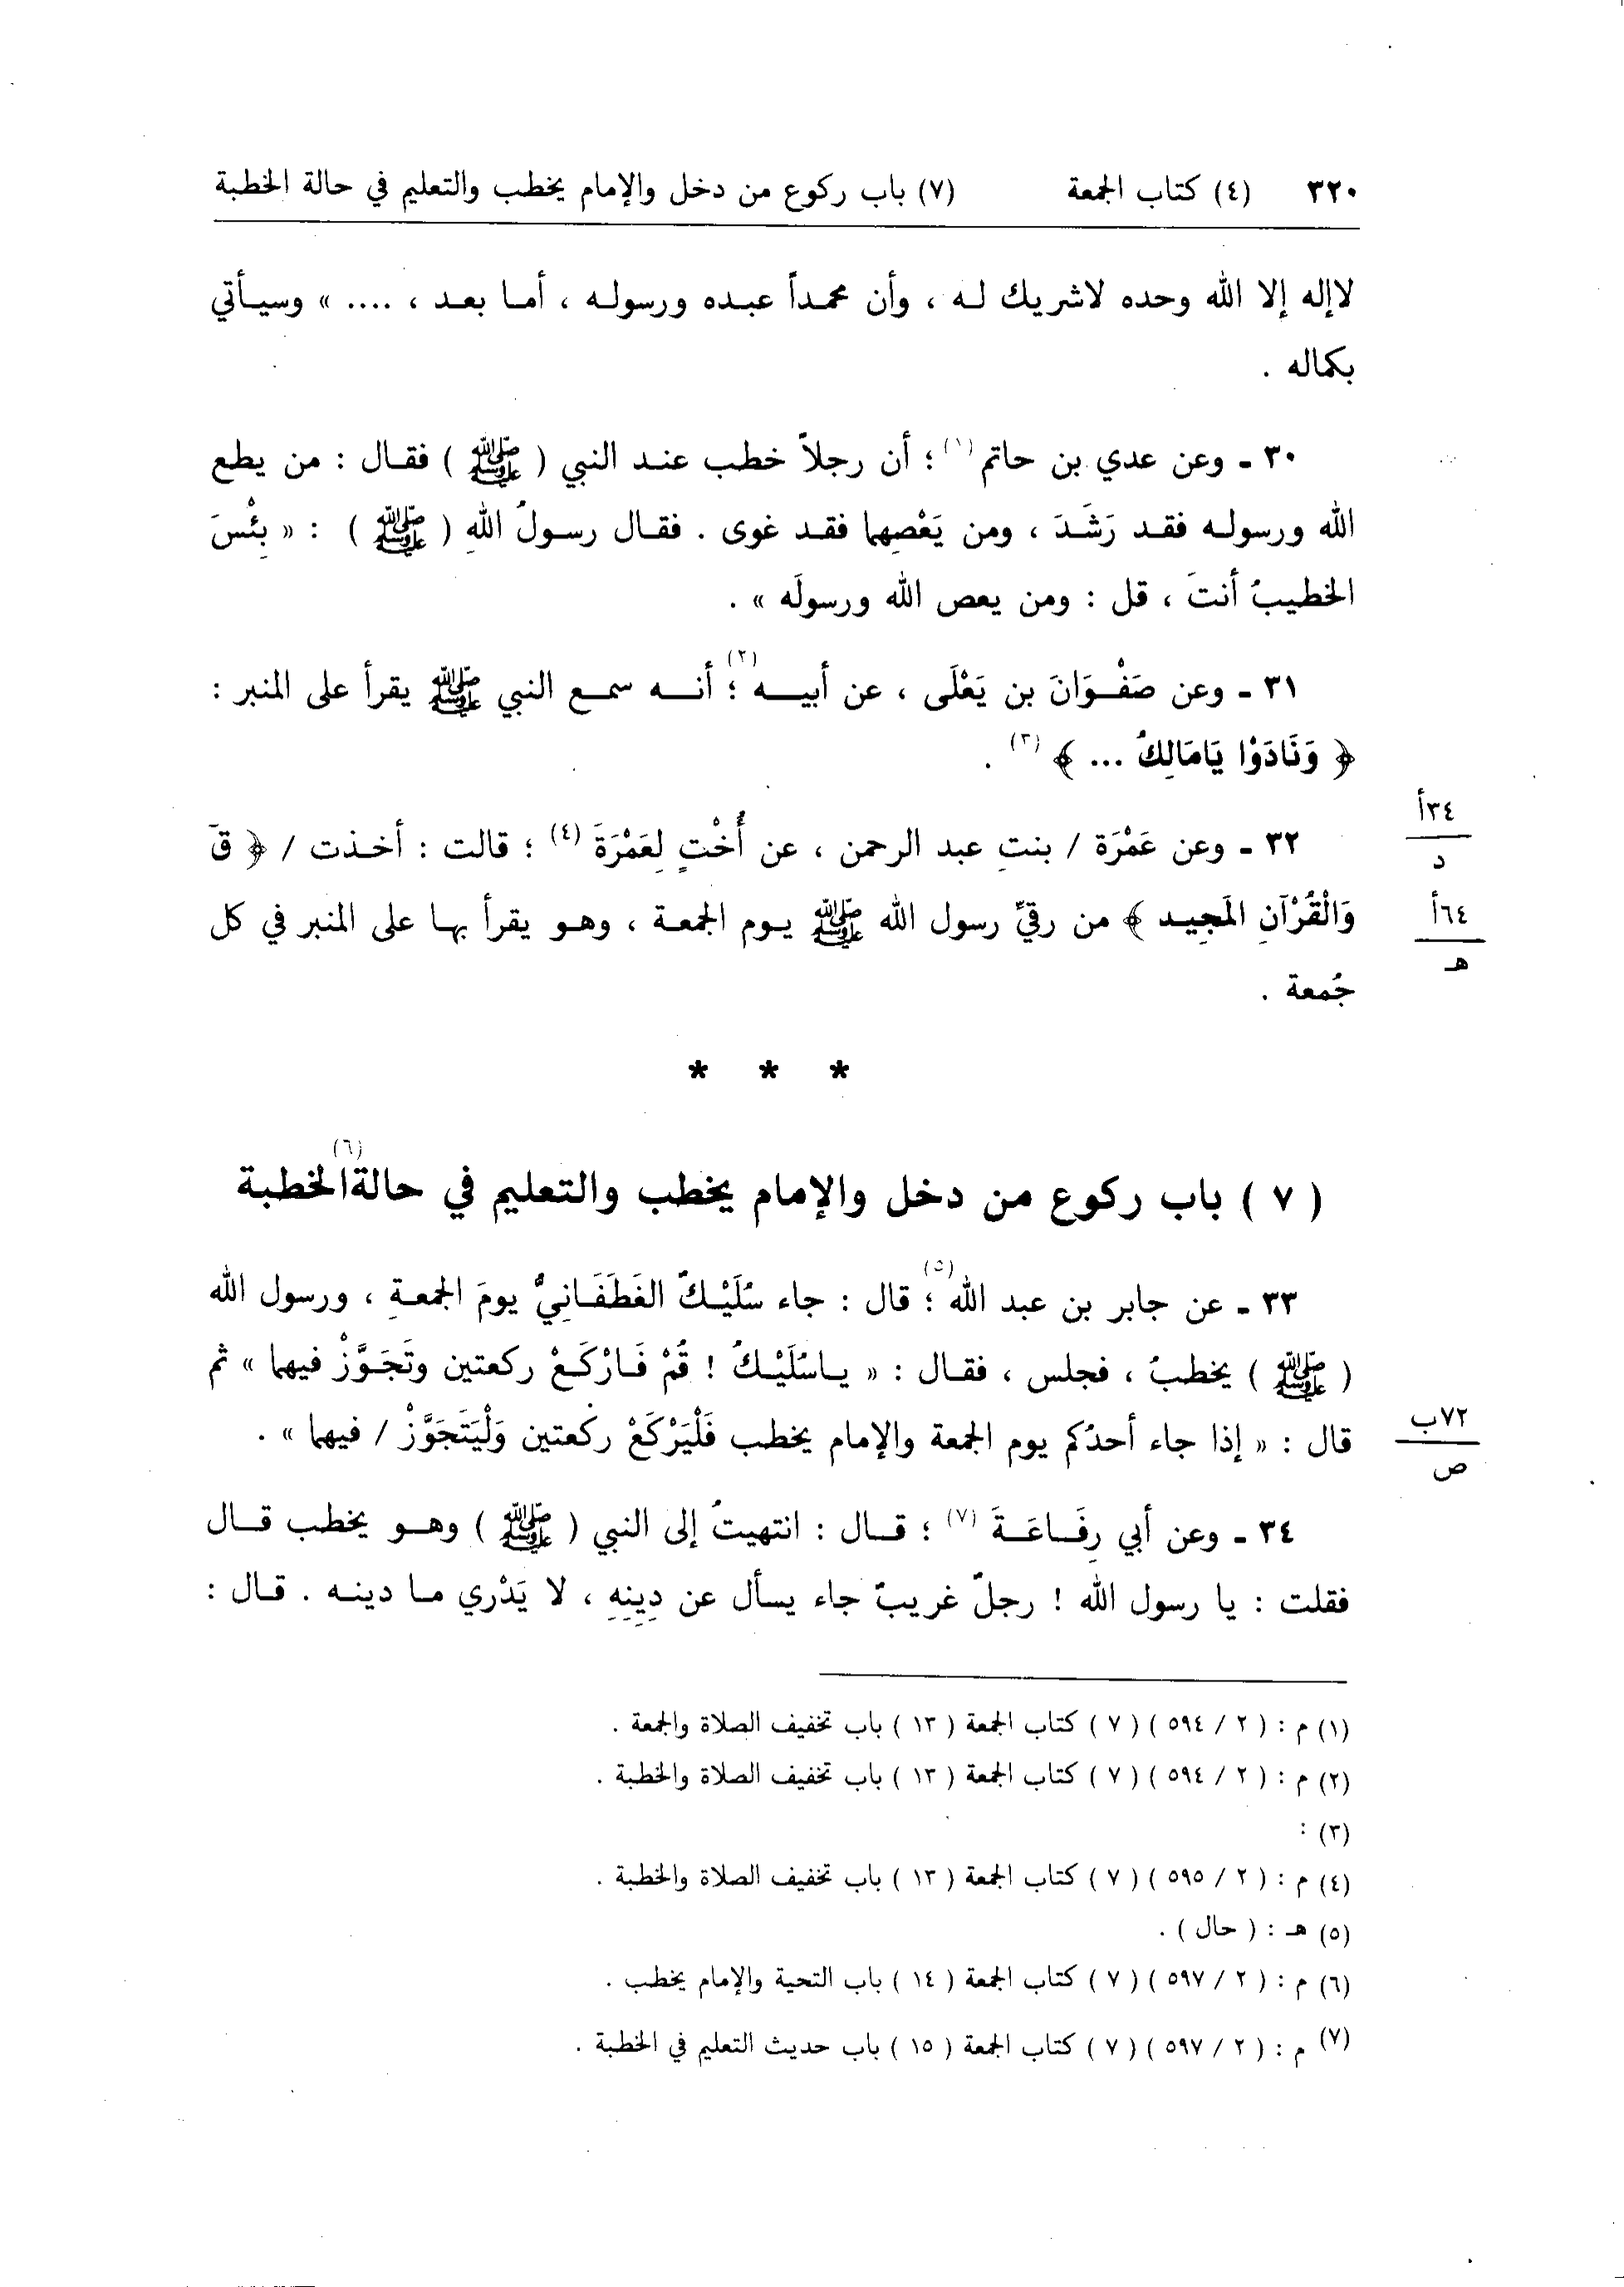 ٣٢٠ (٤) كتاب الجمعة (٧) باب ركوع من دخل والإمام يخطب والتعليم في حالة الخطبة
لاإله إلا الله وحده لاشريك له ، وأن محمداً عبده ورسوله ، أما بعد ، .... » وسيأتي
بكماله .
٣٠ - وعن عدي بن حاتم (١) ؛ أن رجلاً خطب عند النبي ( ﷺ ) فقال : من يطع
الله ورسوله فقد رَشَدَ ، ومن يَعْصِهما فقد غوى . فقال رسولُ اللهِ ( ﷺ ) : « بِئْسَ
الخطيبُ أنتَ ، قل : ومن يعص الله ورسولَه » .
٣١ - وعن صَفْوَانَ بن يَعْلَى ، عن أبيه (٢) ؛ أنه سمع النبي ﷺ يقرأ على المنبر :
﴿ وَنَادَوْا يَامَالِكُ ... ﴾ (٣) .
٣٤أ
٣٢ - وعن عَمْرَة / بنتِ عبد الرحمن ، عن أُخْتٍ لِعَمْرَةَ (٤) ؛ قالت : أخذت / ﴿ قَ
د
وَالْقُرْآنِ المَجِيد ﴾ من رقيِّ رسول الله ﷺ يوم الجمعة ، وهو يقرأ بها على المنبر في كل
٦٤أ
هـ
جُمعة .
* * *
( ٧ ) باب ركوع من دخل والإمام يخطب والتعليم في حالة(٦) الخطبة
٣٣ - عن جابر بن عبد الله (٥) ؛ قال : جاء سُلَيْكٌ الغَطَفَانِيُّ يومَ الجمعةِ ، ورسول الله
( ﷺ ) يخطبُ ، فجلس ، فقال : « ياسُلَيْكُ ! قُمْ فَارْكَعْ ركعتين وتَجَوَّزْ فيهما » ثم
قال : « إذا جاء أحدُكم يوم الجمعة والإمام يخطب فَلْيَرْكَعْ ركعتين وَلْيَتَجَوَّزْ / فيهما » .
٧٢ب
ص
٣٤ - وعن أبي رِفَاعَةَ (٧) ؛ قال : انتهيتُ إلى النبي ( ﷺ ) وهو يخطب قال
فقلت : يا رسول الله ! رجلٌ غريبٌ جاء يسأل عن دِينِهِ ، لا يَدْري ما دينه . قال :
(١) م : ( ٢ / ٥٩٤ ) ( ٧ ) كتاب الجمعة ( ١٣ ) باب تخفيف الصلاة والجمعة .
(٢) م : ( ٢ / ٥٩٤ ) ( ٧ ) كتاب الجمعة ( ١٣ ) باب تخفيف الصلاة والخطبة .
(٣) :
(٤) م : ( ٢ / ٥٩٥ ) ( ٧ ) كتاب الجمعة ( ١٣ ) باب تخفيف الصلاة والخطبة .
(٥) هـ : ( حال ) .
(٦) م : ( ٢ / ٥٩٧ ) ( ٧ ) كتاب الجمعة ( ١٤ ) باب التحية والإمام يخطب .
(٧) م : ( ٢ / ٥٩٧ ) ( ٧ ) كتاب الجمعة ( ١٥ ) باب حديث التعليم في الخطبة .